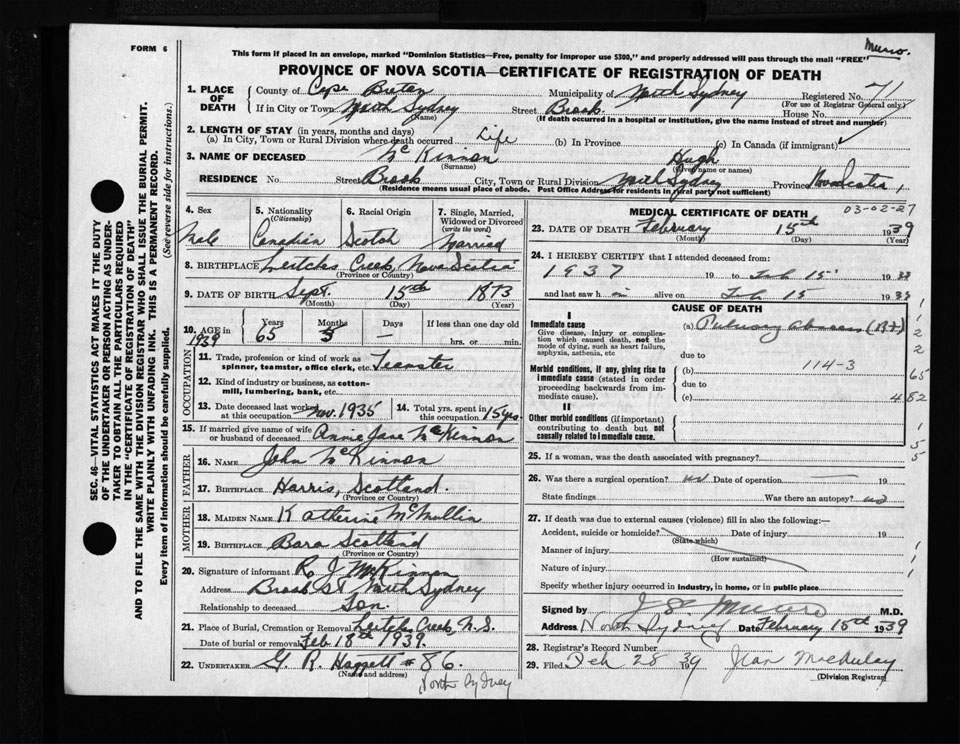 Munro.
FORM 6
This form if placed in an envelope, marked "Dominion Statistics—Free, penalty for improper use $300," and properly addressed will pass through the mail "FREE"
PROVINCE OF NOVA SCOTIA—CERTIFICATE OF REGISTRATION OF DEATH
1. PLACE OF DEATH
County of Cape Breton Municipality of North Sydney Registered No. 71
(For use of Registrar General only)
If in City or Town North Sydney Street Brook House No.
(Name) (If death occurred in a hospital or institution, give the name instead of street and number)
2. LENGTH OF STAY (in years, months and days)
(a) In City, Town or Rural Division where death occurred Life (b) In Province (c) In Canada (if immigrant)
3. NAME OF DECEASED McKinnon Hugh
(Surname) (Given name or names)
RESIDENCE No. Street Brook City, Town or Rural Division North Sydney Province Nova Scotia
(Residence means usual place of abode. Post Office Address for residents in rural parts not sufficient)
4. Sex 5. Nationality (Citizenship) 6. Racial Origin 7. Single, Married, Widowed or Divorced (write the word)
Male Canadian Scotch Married
8. BIRTHPLACE Leitches Creek, Nova Scotia
(Province or Country)
9. DATE OF BIRTH Sept. 15th 1873
(Month) (Day) (Year)
10. AGE in Years Months Days If less than one day old
1939 65 5 — hrs. or min.
OCCUPATION
11. Trade, profession or kind of work as spinner, teamster, office clerk, etc. Teamster
12. Kind of industry or business, as cotton-mill, lumbering, bank, etc.
13. Date deceased last worked at this occupation Nov. 1935 14. Total yrs. spent in this occupation 15 yrs
15. If married give name of wife or husband of deceased Annie Jane McKinnon
FATHER
16. NAME John McKinnon
17. BIRTHPLACE Harris, Scotland.
(Province or Country)
MOTHER
18. MAIDEN NAME Katherine McMullin
19. BIRTHPLACE Bara Scotland
(Province or Country)
20. Signature of informant R. J. McKinnon
Address Brook St North Sydney
Relationship to deceased Son.
21. Place of Burial, Cremation or Removal Leitches Creek, N.S.
Date of burial or removal Feb. 18th 1939.
22. UNDERTAKER G. R. Haggett # 86.
(Name and address)
North Sydney
MEDICAL CERTIFICATE OF DEATH 03-02-27
23. DATE OF DEATH February 15th 1939
(Month) (Day) (Year)
24. I HEREBY CERTIFY that I attended deceased from:
1937 19 to Feb 15
and last saw h im alive on Feb 15
CAUSE OF DEATH
I
Immediate cause
Give disease, injury or complication which caused death, not the mode of dying, such as heart failure, asphyxia, asthenia, etc
(a)
due to
Morbid conditions, if any, giving rise to immediate cause (stated in order proceeding backwards from immediate cause).
(b) 114-3
due to
(c)
II
Other morbid conditions (if important) contributing to death but not causally related to immediate cause.
25. If a woman, was the death associated with pregnancy?
26. Was there a surgical operation? no Date of operation — 19
State findings Was there an autopsy? no
27. If death was due to external causes (violence) fill in also the following:—
Accident, suicide or homicide? Date of injury 19
(State which)
Manner of injury
(How sustained)
Nature of injury
Specify whether injury occurred in industry, in home, or in public place
Signed by Munro M.D.
Address North Sydney Date February 18th 1939
28. Registrar's Record Number
29. Filed Feb 28 1939 Jean MacAulay
(Division Registrar)
SEC. 46—VITAL STATISTICS ACT MAKES IT THE DUTY
OF THE UNDERTAKER OR PERSON ACTING AS UNDERTAKER TO OBTAIN ALL THE PARTICULARS REQUIRED
IN THE "CERTIFICATE OF REGISTRATION OF DEATH"
AND TO FILE THE SAME WITH THE DIVISION REGISTRAR WHO SHALL ISSUE THE BURIAL PERMIT.
WRITE PLAINLY WITH UNFADING INK. THIS IS A PERMANENT RECORD.
Every item of information should be carefully supplied. (See reverse side for instructions.)